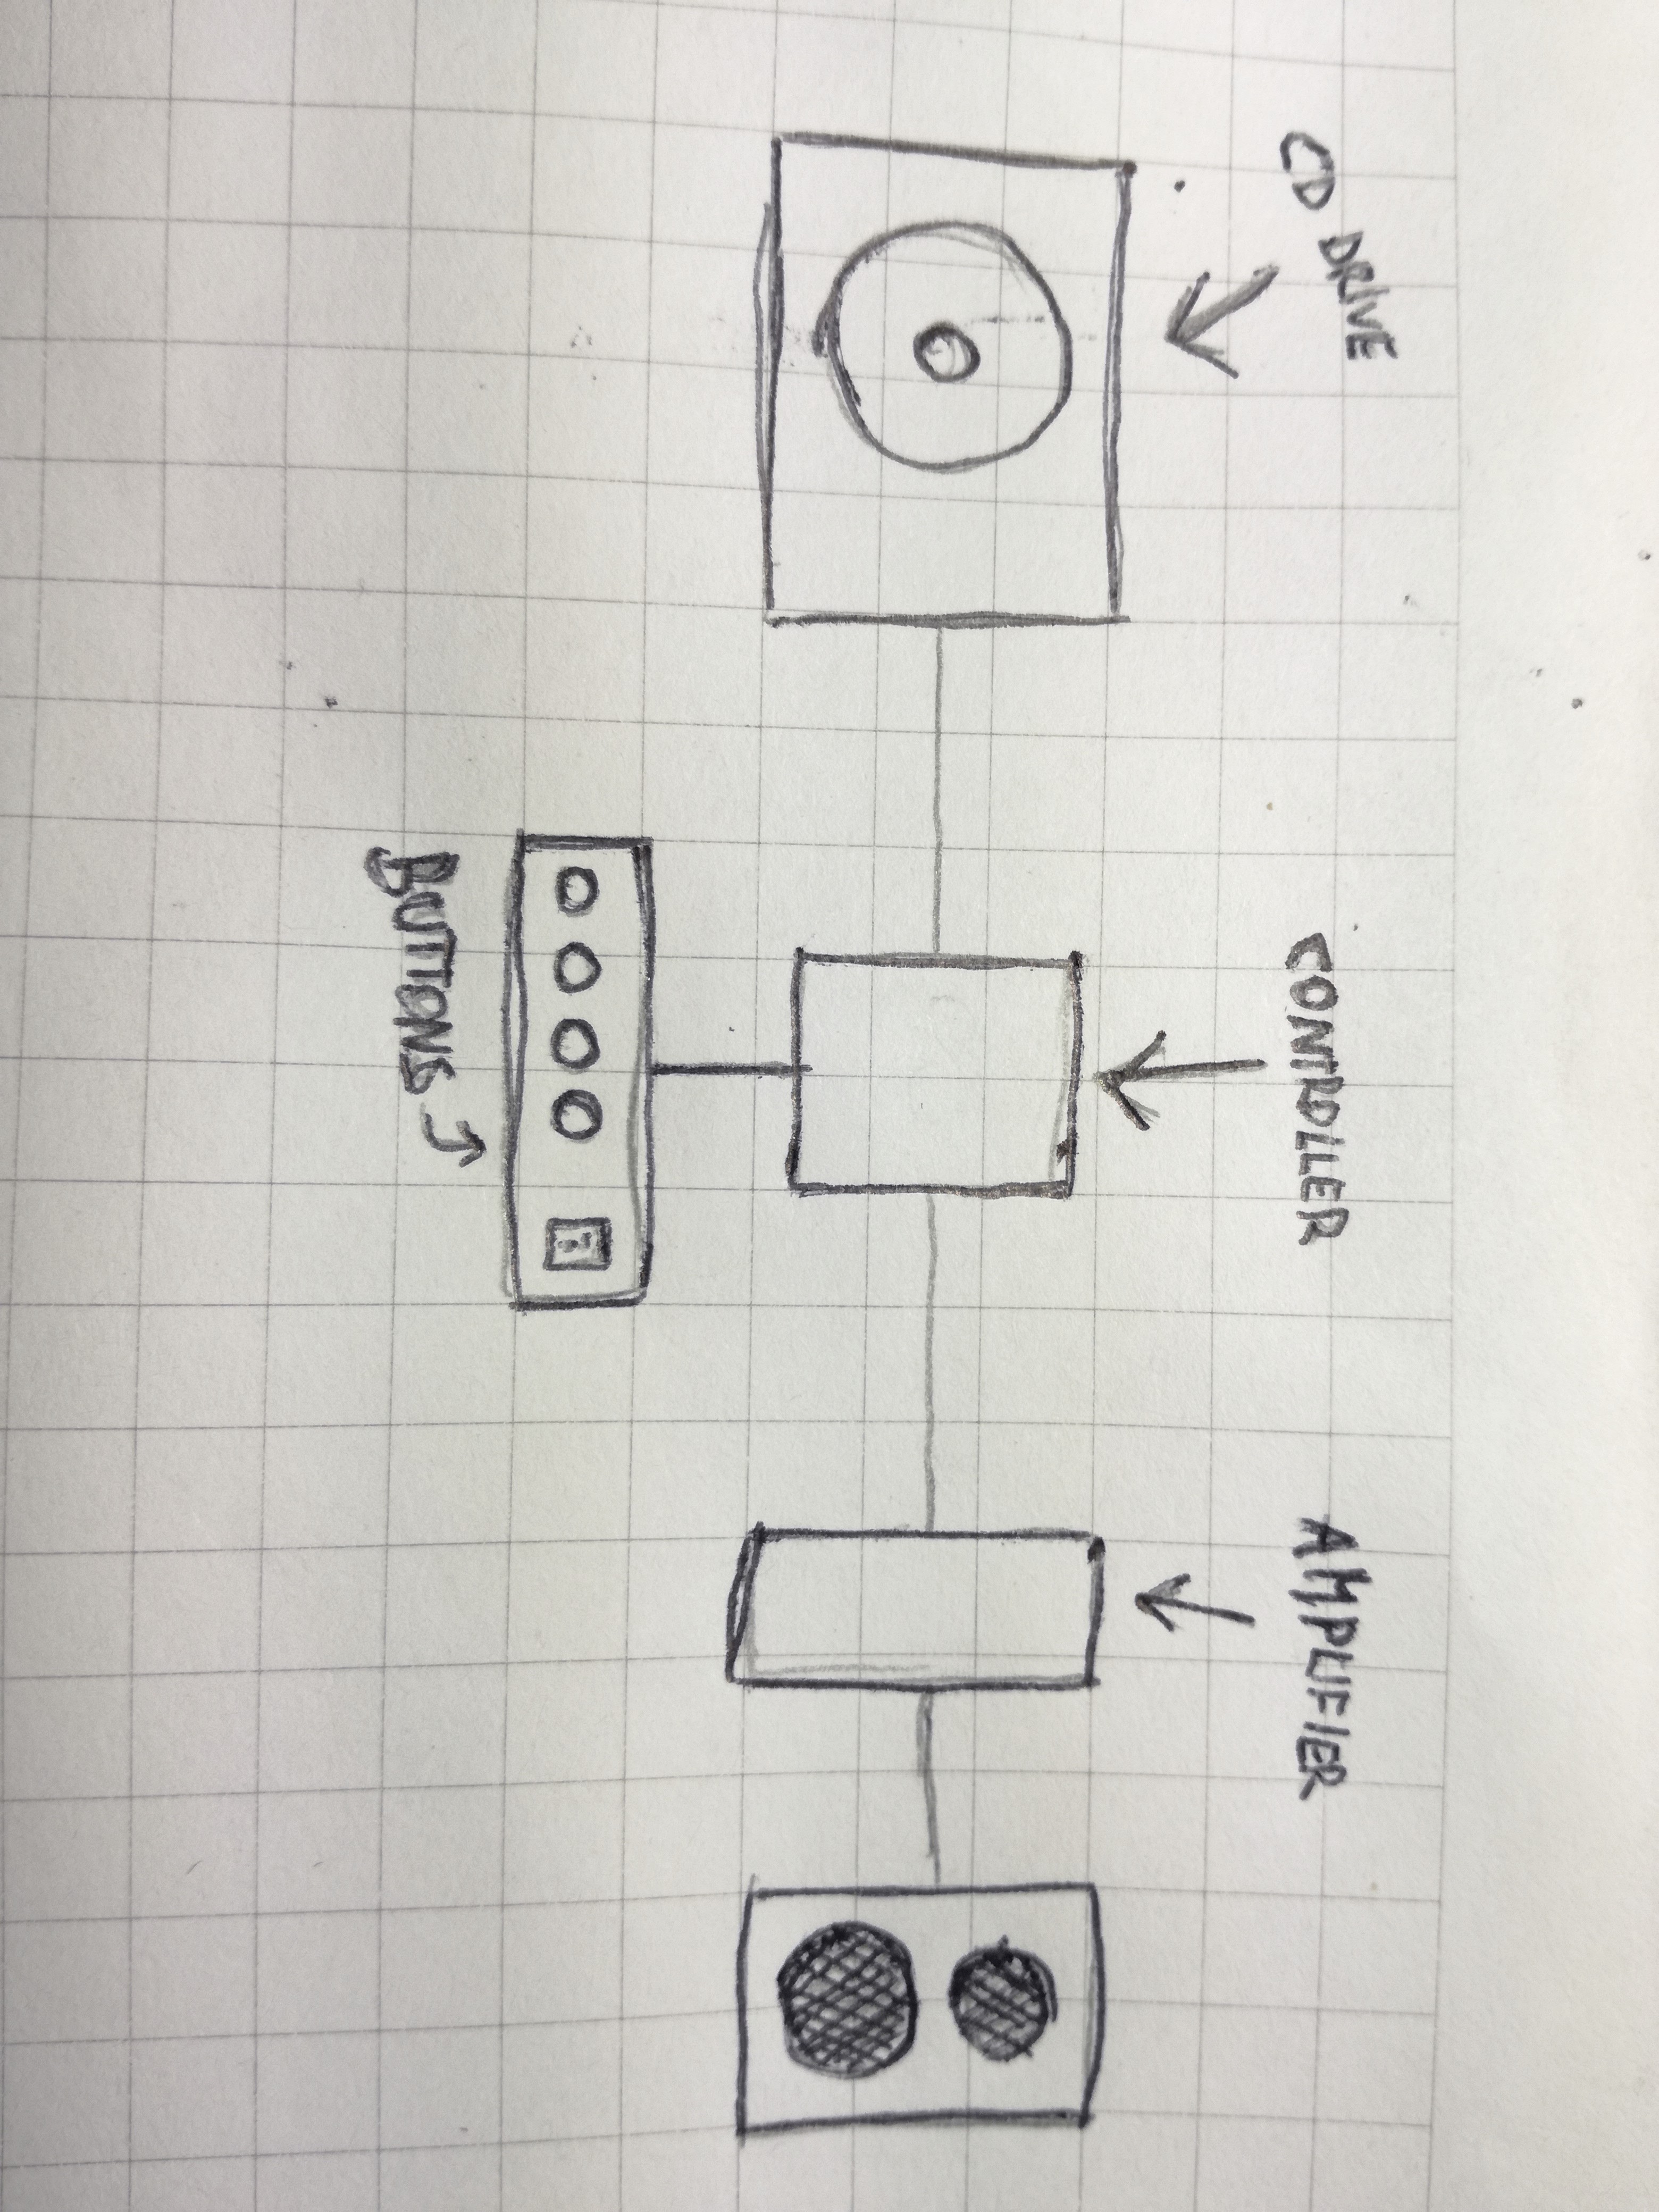 CD DRIVE
CONTROLLER
AMPLIFIER
BUTTONS